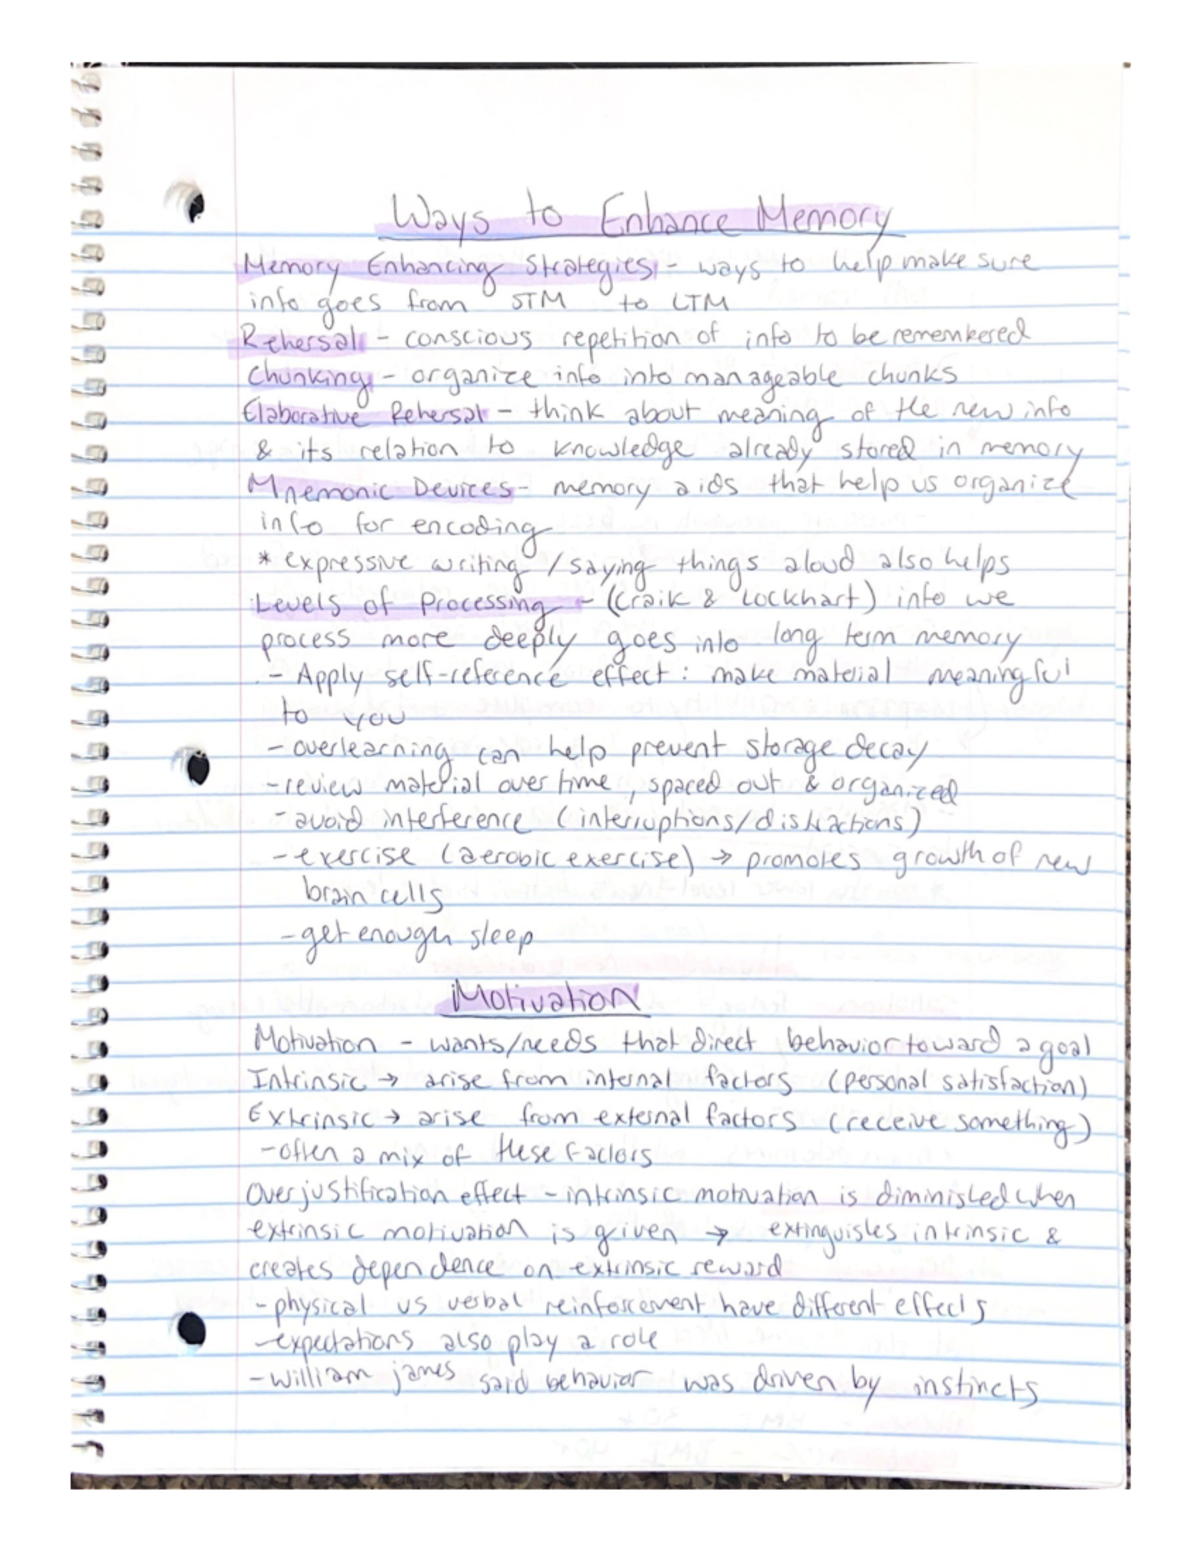 Ways to Enhance Memory
Memory Enhancing Strategies - ways to help make sure
info goes from STM to LTM
Rehersal - conscious repetition of info to be remembered
Chunking - organize info into manageable chunks
Elaborative Rehersal - think about meaning of the new info
& its relation to knowledge already stored in memory
Mnemonic Devices - memory aids that help us organize
info for encoding
* expressive writing / saying things aloud also helps
Levels of Processing - (Craik & Lockhart) info we
process more deeply goes into long term memory
- Apply self-reference effect: make material meaningful
to you
- overlearning can help prevent storage decay
- review material over time, spaced out & organized
- avoid interference (interruptions/distractions)
- exercise (aerobic exercise) → promotes growth of new
brain cells
- get enough sleep
Motivation
Motivation - wants/needs that direct behavior toward a goal
Intrinsic → arise from internal factors (personal satisfaction)
Extrinsic → arise from external factors (receive something)
- often a mix of these factors
Overjustification effect - intrinsic motivation is diminished when
extrinsic motivation is given → extinguishes intrinsic &
creates dependence on extrinsic reward
- physical vs verbal reinforcement have different effects
- expectations also play a role
- william james said behavior was driven by instincts